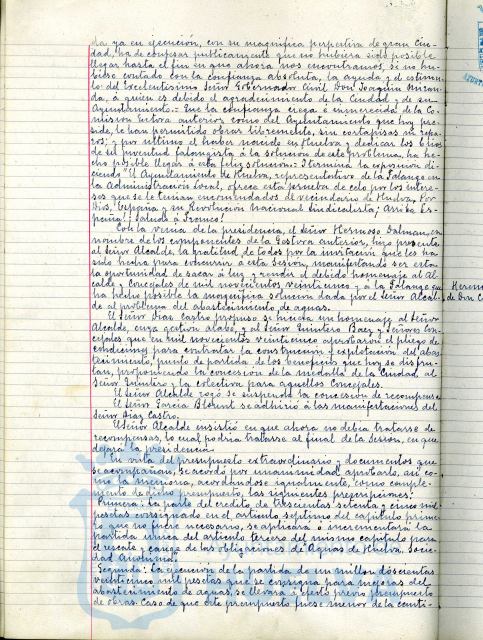 da ya en ejecución, con su magnífica perspectiva de gran Ciu-
dad, ha de confesar publicamente que no hubiera sido posible
llegar hasta el fin en que ahora nos encontramos, si no hu-
biere contado con la confianza absoluta, la ayuda y el estimu-
lo del Excelentísimo Señor Gobernador Civil Don Joaquin Miran-
da, á quien es debido el agradecimiento de la Ciudad y de su
Ayuntamiento. Que la confianza ciega é inmerecida de la Co-
mision Gestora anterior como del Ayuntamiento que hoy pre-
side, le han permitido obrar libremente, sin cortapisas ni repa-
ros; y por ultimo el haber nacido en Huelva y dedicar los brios
de su juventud falangista á la solucion de este problema, ha he-
cho posible llegar á esta feliz solucion. Termina la exposicion di-
ciendo "El Ayuntamiento de Huelva, representativo de la Falange en
la Administracion local, ofrece esta prueba de celo por los intere-
ses que le tenian encomendados el vecindario de Huelva, Por
Dios, España y su Revolucion Nacional Sindicalista; Arriba Es-
paña! ¡Saludo á Franco!
Con la venia de la presidencia, el señor Hermoso Dalman, en
nombre de los componentes de la Gestora anterior, hizo presente
al Señor Alcalde, la gratitud de todos por la invitacion que les ha
sido hecha para concurrir á esta Sesion, manifestando ser esta
la oportunidad de sacar á luz y rendir el debido homenaje al Al-
calde y Concejales de mil novecientos veintiuno y á la Falange que
ha hecho posible la magnifica solucion dada por el Señor Alcal-
de al problema del abastecimiento de aguas.
El Señor Diaz Castro propuso se hiciera un homenaje al Señor
Alcalde, cuya gestion alabó, y al Señor Quintero Baez y señores Con-
cejales que en mil novecientos veintiuno aprobaron el pliego de
condiciones para contratar la construccion y explotacion del abas-
tecimiento, punto de partida de los beneficios que hoy se disfru-
tan, proponiendo la concesion de la medalla de la Ciudad al
Señor Quintero y la colectiva para aquellos Concejales.
El Señor Alcalde rogó se suspenda la concesion de recompensas
El Señor Garcia Blount se adhirió á las manifestaciones del
Señor Diaz Castro.
El Señor Alcalde insistió en que ahora no debia tratarse de
recompensas, lo cual podria tratarse al final de la Sesion, en que
dejará la presidencia.
En vista del presupuesto extraordinario y documentos que
se acompañan, se acordó por unanimidad aprobarlo, asi co-
mo la memoria, acordandose igualmente, como comple-
mento de dicho presupuesto, las siguientes prescripciones:
Primera: La parte del credito de trescientas setenta y cinco mil
pesetas consignado en el articulo septimo del capitulo prime-
ro que no fuere necesario, se aplicará é incrementará la
partida unica del articulo tercero del mismo capitulo para
el rescate y canje de las obligaciones de Aguas de Huelva, Socie-
dad Anonima".
Segunda: La ejecucion de la partida de un millon doscientas
veinticinco mil pesetas que se consigna para mejoras del
abastecimiento de aguas, se llevará á efecto previo presupuesto
de obras. Caso de que este presupuesto fuese menor de la canti-